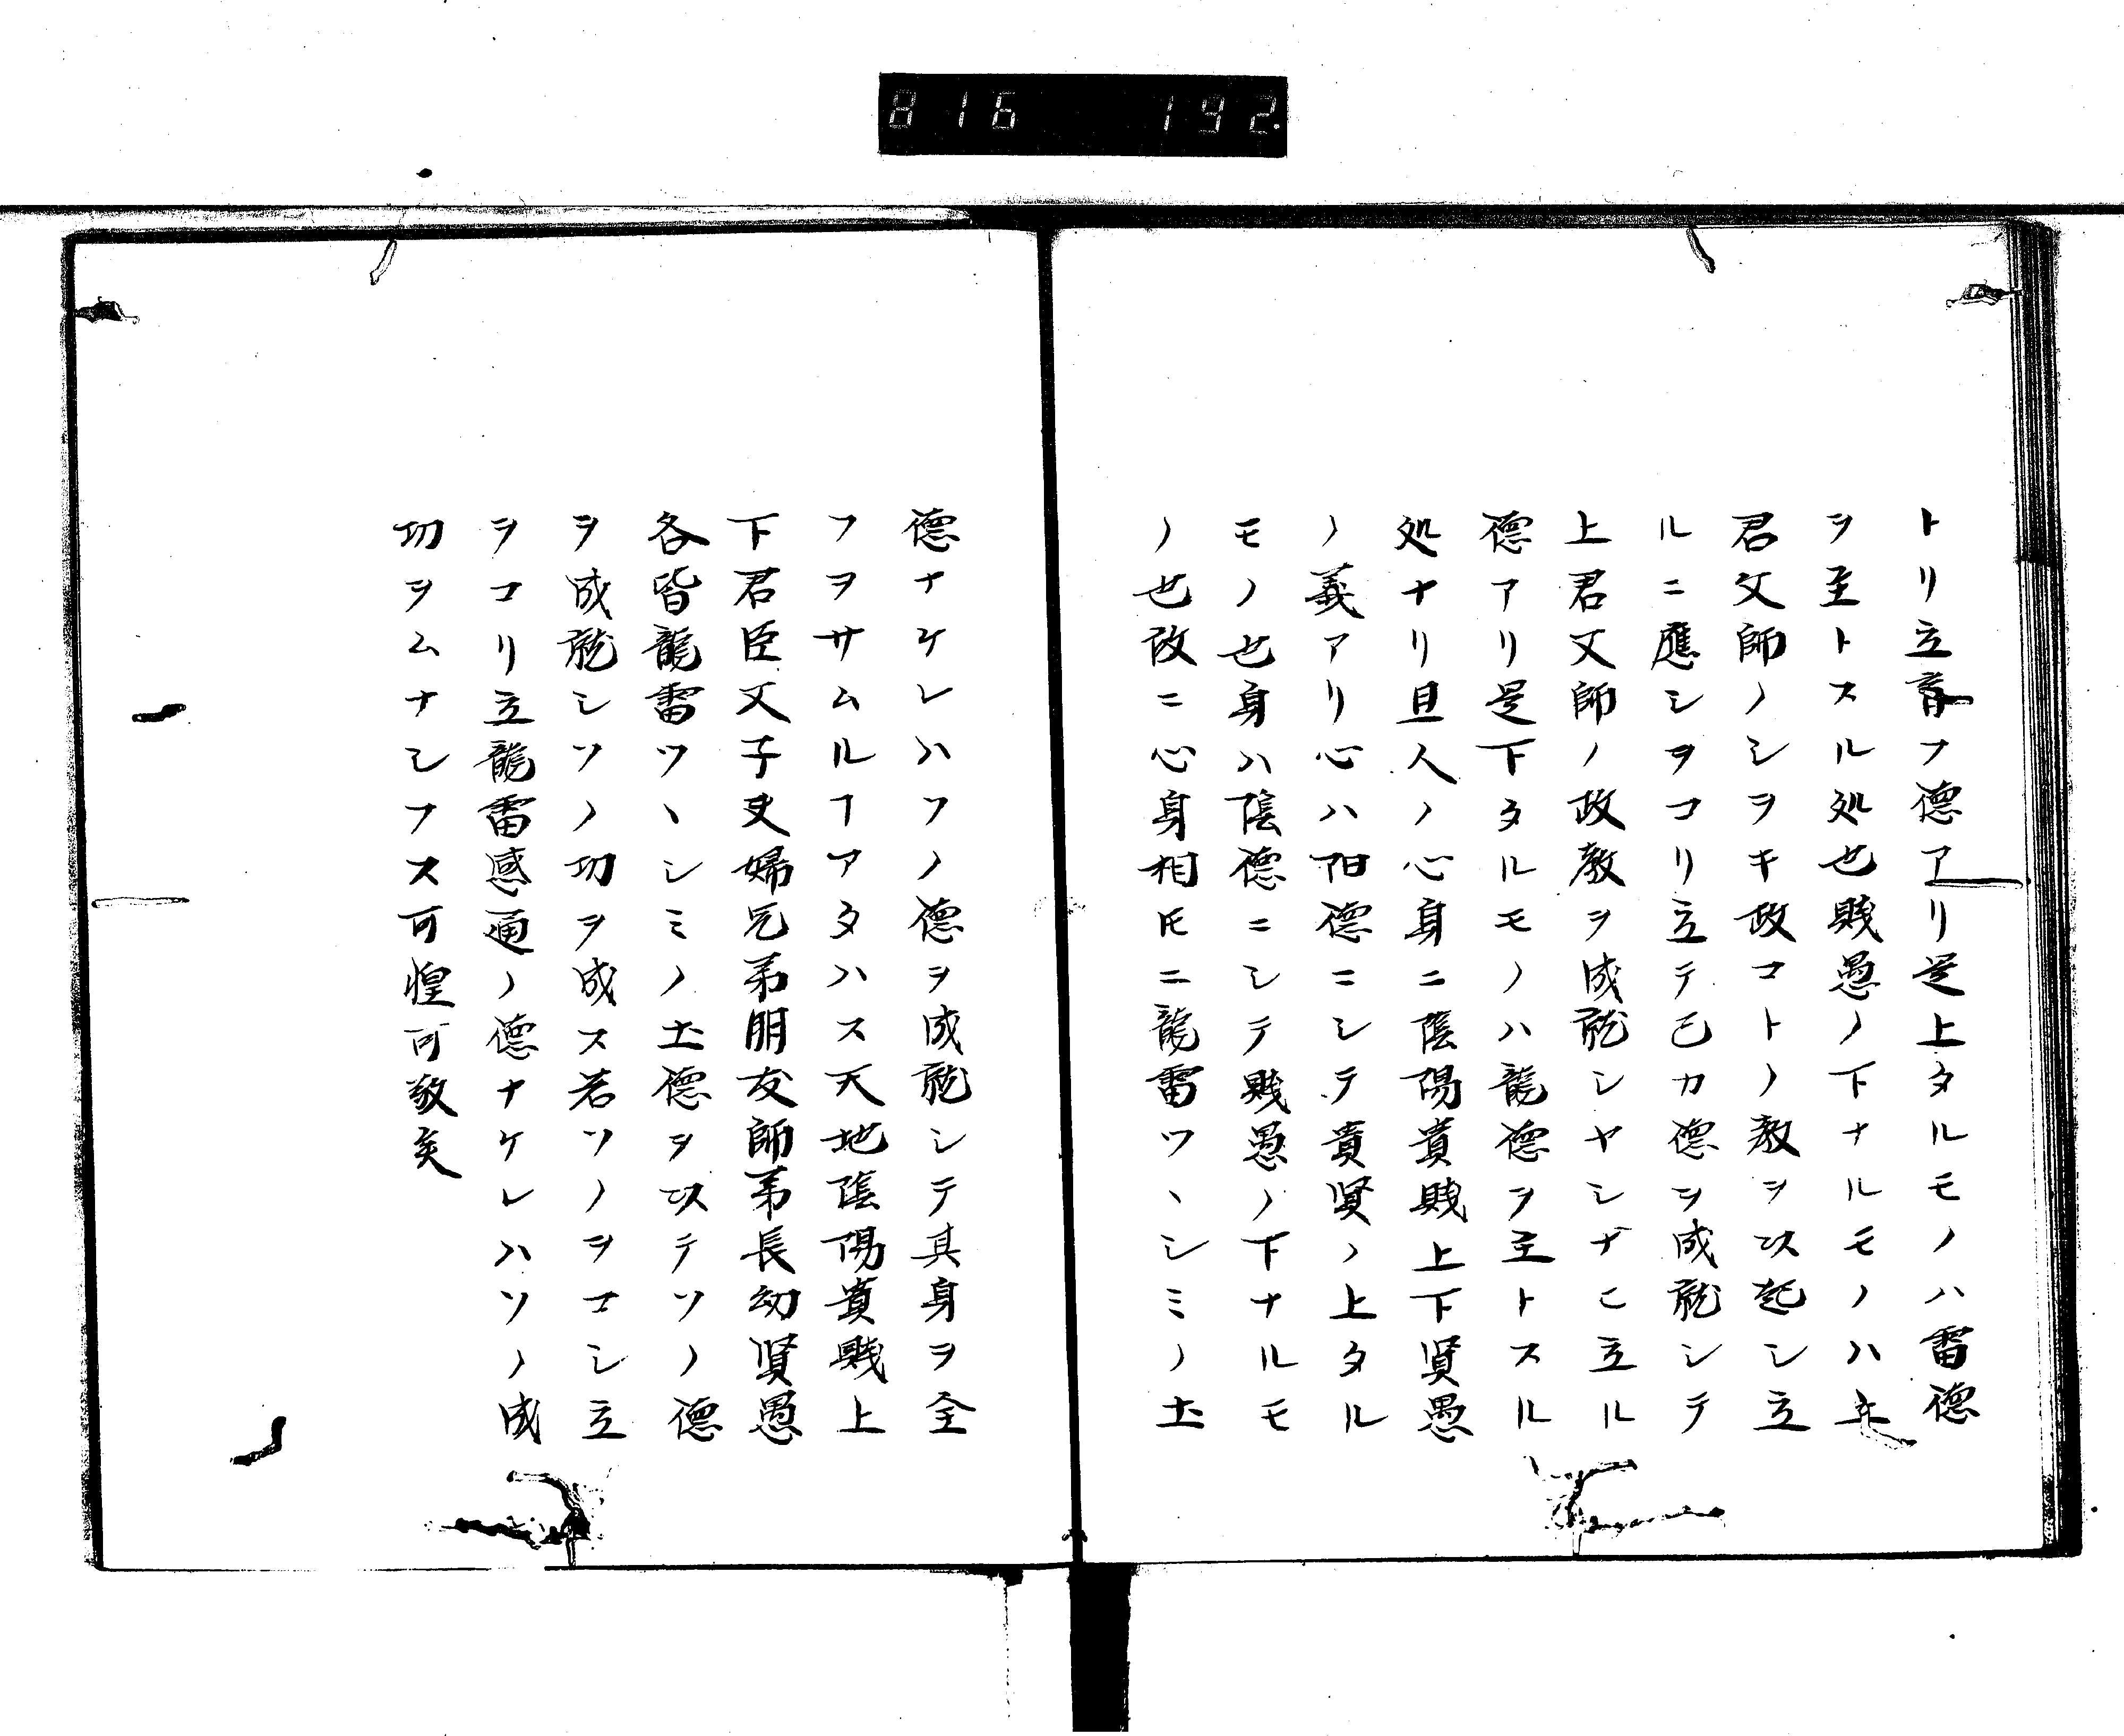 816 192.
トリ立育フ德アリ是上タルモノハ雷德
ヲ至トスル処也賤愚ノ下ナルモノハ
君父師ノシヲキ政コトノ教ヲ以起シ立
ルニ應シヲコリ立テ己カ德ヲ成就シテ
上君父師ノ政教ヲ成就シヤシナヒ立ル
德アリ是下タルモノハ龍德ヲ至トスル
処ナリ且人ノ心身ニ陰陽貴賤上下賢愚
ノ義アリ心ハ阳德ニシテ貴賢ノ上タル
モノ也身ハ陰德ニシテ賤愚ノ下ナルモ
ノ也故ニ心身相𪜈ニ龍雷ツヽシミノ土
德ナケレハソノ德ヲ成就シテ其身ヲ全
フヲサムルヿアタハス天地陰陽貴賤上
下君臣父子夫婦兄弟朋友師弟長幼賢愚
各皆龍雷ツヽシミノ土德ヲ以テソノ德
ヲ成就シソノ功ヲ成ス若ソノヲコシ立
ヲコリ立龍雷感通ノ德ナケレハソノ成
功ヲムナシフス可惶可敬矣